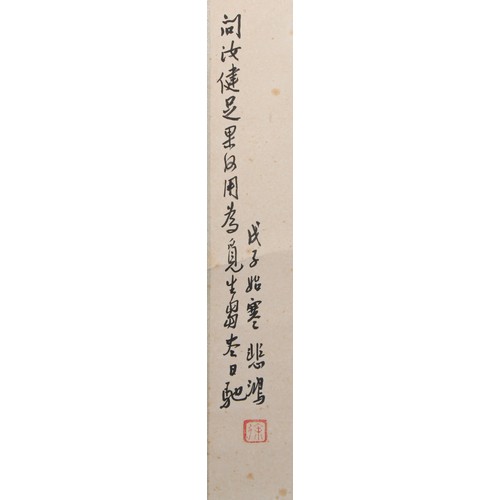 問汝健足果何用為覓生芻盡日馳
戊子始寒悲鴻
徐